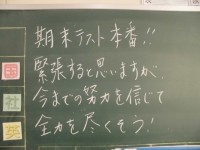 期末テスト本番!!
緊張すると思いますが、
今までの努力を信じて
全力を尽くそう!
国
社
英